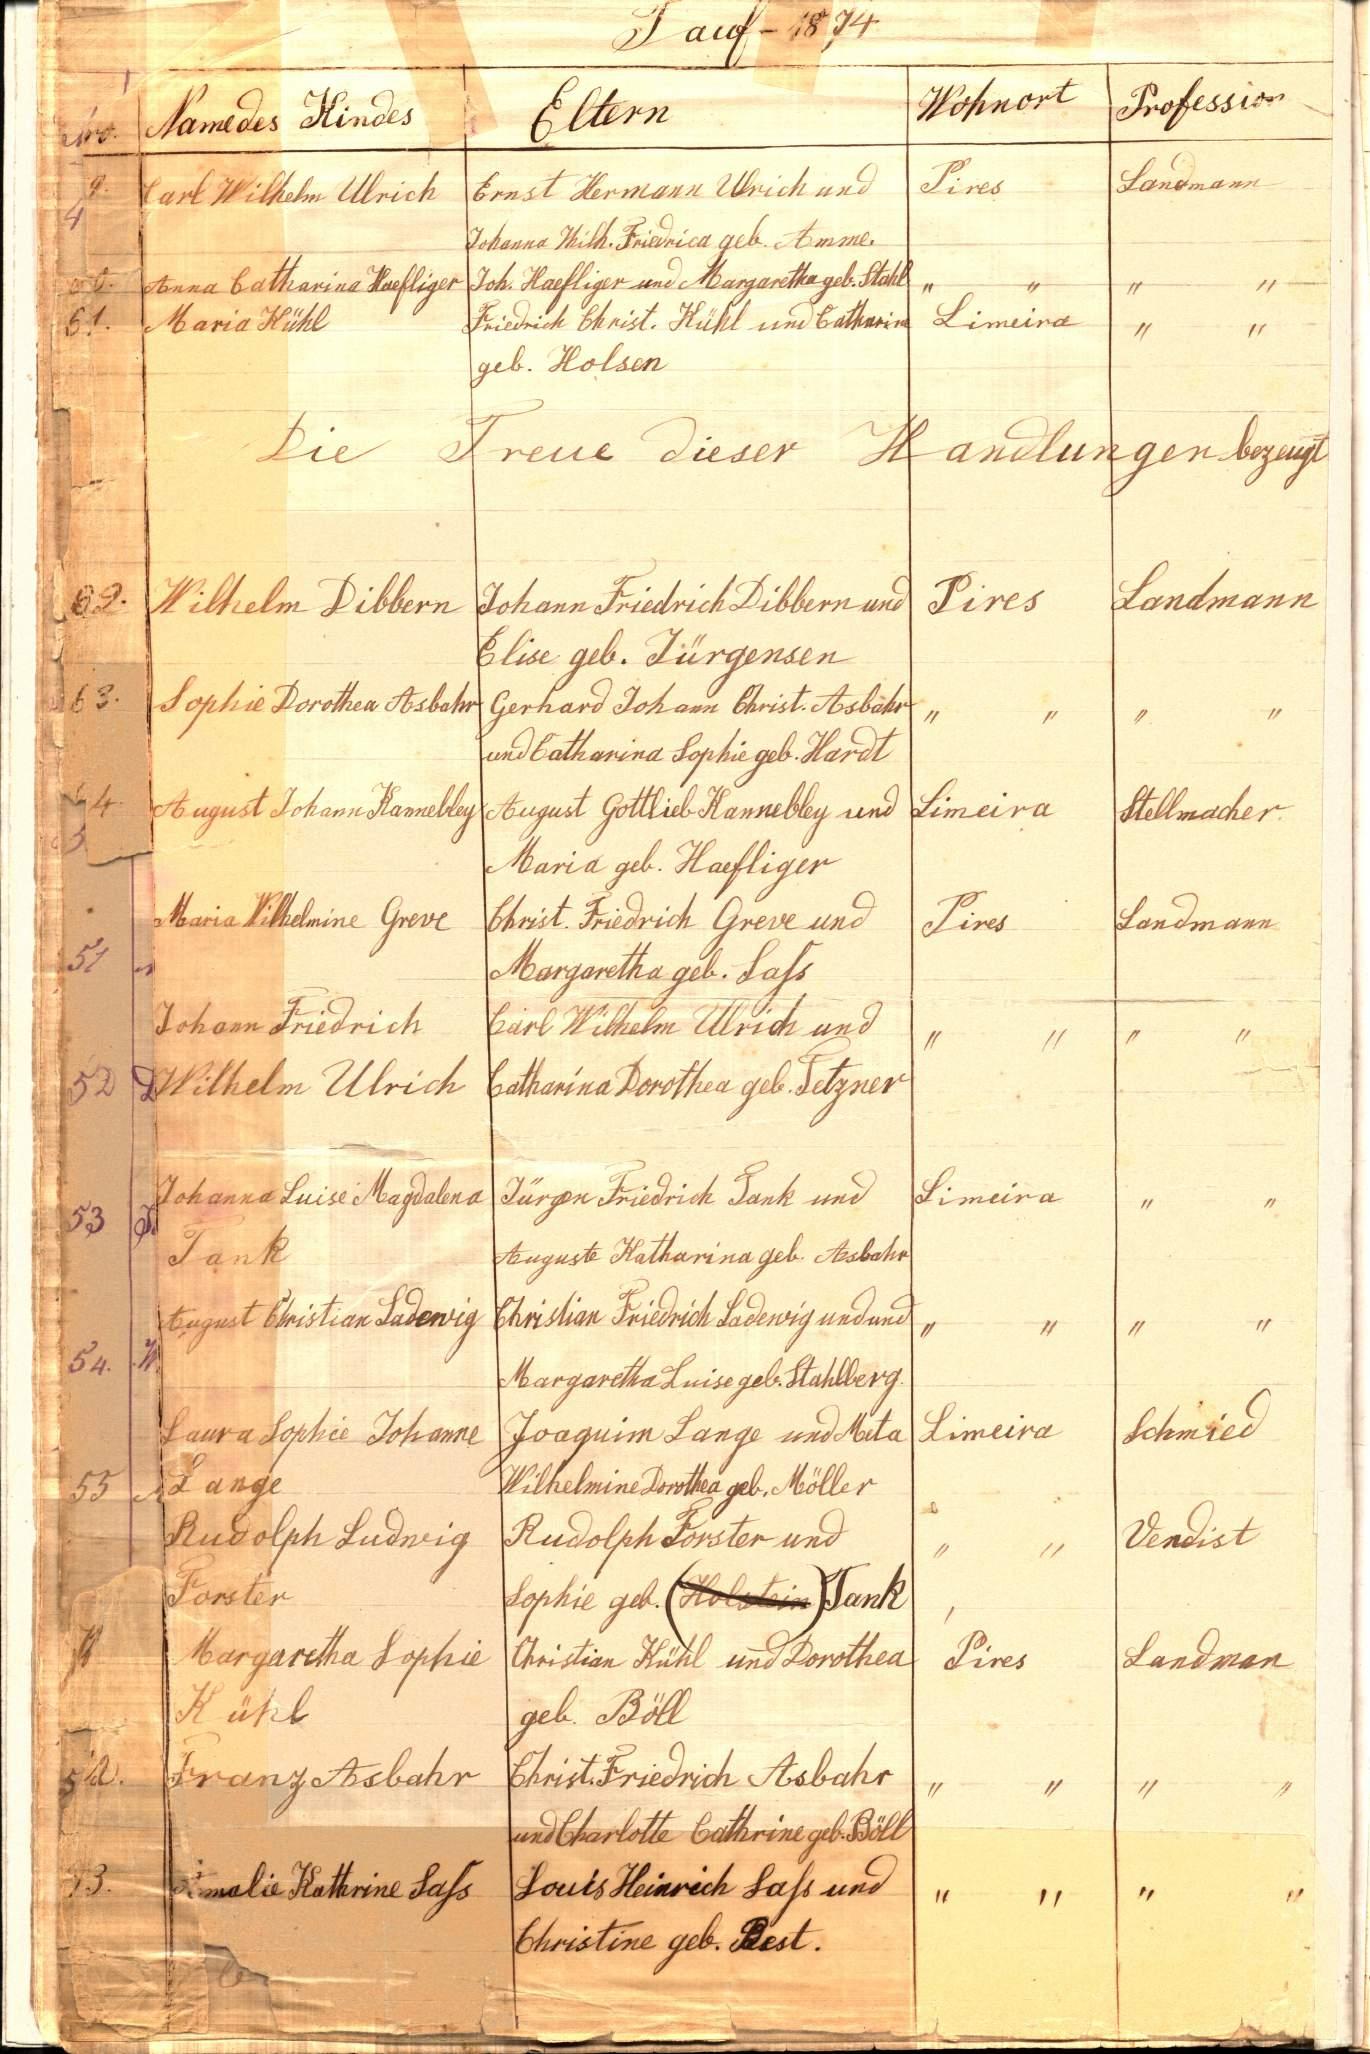 Tauf - 1874
Nro. Name des Kindes Eltern Wohnort Profession
9. Carl Wilhelm Ulrich Ernst Hermann Ulrich und Pires Landmann
4 Johanna Wilh. Friedrica geb. Amme.
Anna Catharina Haefliger Joh. Haefliger und Margaretha geb. Stahl " " " "
61. Maria Kühl Friedrich Christ. Kühl und Catharina Limeira " "
geb. Holsen
Die Treue dieser Handlungen bezeugt
62. Wilhelm Dibbern Johann Friedrich Dibbern und Pires Landmann
Elise geb. Jürgensen
63. Sophie Dorothea Asbahr Gerhard Johann Christ. Asbahr " " " "
und Catharina Sophie geb. Hardt
4. August Johann Kannebley August Gottlieb Kannebley und Limeira Stellmacher.
5 Maria geb. Haefliger
Maria Wilhelmine Greve Christ. Friedrich Greve und Pires Landmann
51 Margaretha geb. Saſs
Johann Friedrich Carl Wilhelm Ulrich und " " " "
52 D Wilhelm Ulrich Catharina Dorothea geb. Tetzner
Johanna Luise Magdalena Jürgen Friedrich Tank und Limeira " "
53 Tank Auguste Katharina geb. Asbahr
August Christian Ladewig Christian Friedrich Ladewig und und " " " "
54. W. Margaretha Luise geb. Stahlberg.
Laura Sophie Johanne Joaquim Lange und Meta Limeira Schmied
55 Lange Wilhelmine Dorothea geb. Möller
Rudolph Ludwig Rudolph Forster und " " Vendist
Forster Sophie geb. (Holstein) Tank
Margaretha Sophie Christian Kühl und Dorothea Pires Landman
Kühl geb. Böll
Franz Asbahr Christ. Friedrich Asbahr " " " "
und Charlotte Cathrine geb. Böll
73. Amalie Kathrine Saſs Louis Heinrich Saſs und " " " "
Christine geb. Best.